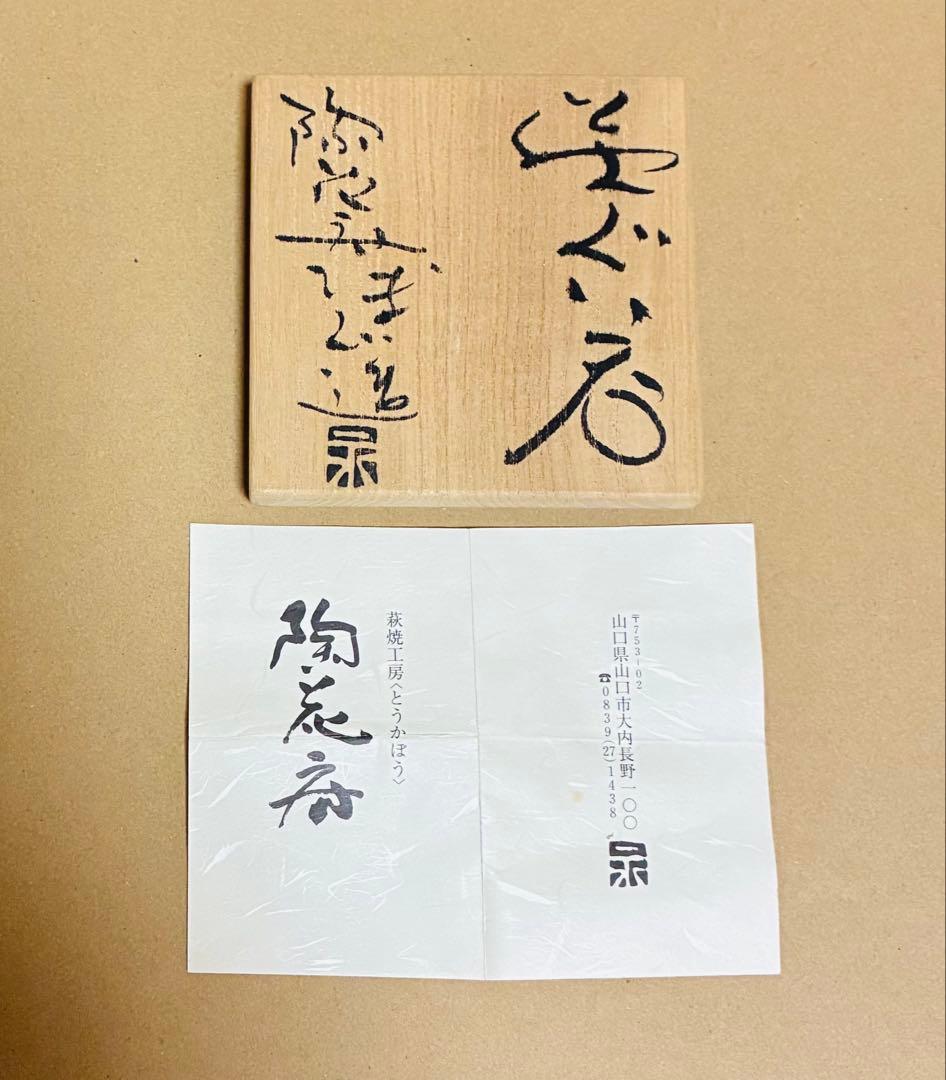 ぐい呑
陶花房
造
〒753-02
山口県山口市大内長野一〇〇
☎0839(27)1438
萩焼工房〈とうかぼう〉
陶花房